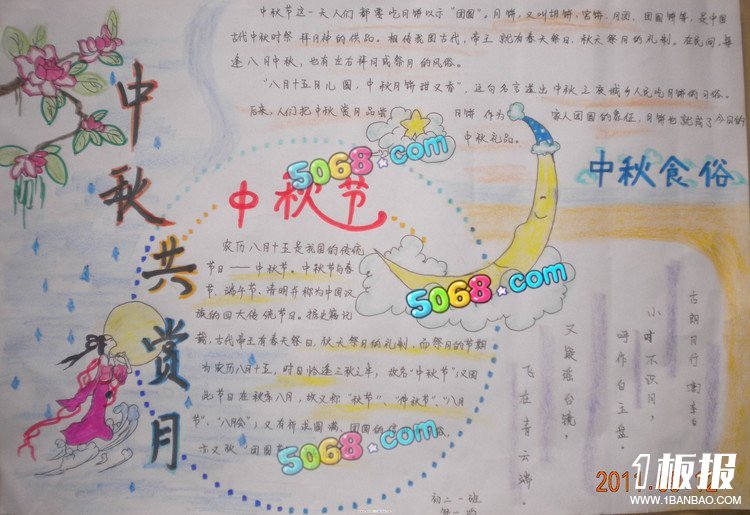 中秋节这一天人们都要吃月饼以示“团圆”。月饼,又叫胡饼、宫饼、月团、团圆饼等,是中国
古代中秋时祭拜月神的供品。相传我国古代,帝王就有春天祭日,秋天祭月的礼制。在民间,每
逢八月中秋,也有左右拜月或祭月的风俗。
“八月十五月儿圆,中秋月饼甜又香”,这句名言道出中秋之夜城乡人民吃月饼的习俗。
后来,人们把中秋赏月品尝 月饼作为 家人团圆的象征,月饼也就成了今日的
中秋礼品。
中秋共赏月
中秋食俗
中秋节
农历八月十五是我国的传统
节日——中秋节。中秋节与春
节、端午节、清明并称为中国汉
族的四大传统节日。据史籍记
载,古代帝王有春天祭日,秋天祭月的礼制,而祭月的节期
为农历八月十五,时日恰逢三秋之半,故名“中秋节”;又因
此节日在秋季八月,故又称“秋节”、“仲秋节”、“八月
节”、“八月会”;又有祈求团圆的信
古朗月行 李白
小时不识月,
呼作白玉盘。
又疑瑶台镜,
飞在青云端。
初二一班
5068.com
5068.com
5068.com
1板报
WWW.1BANBAO.COM